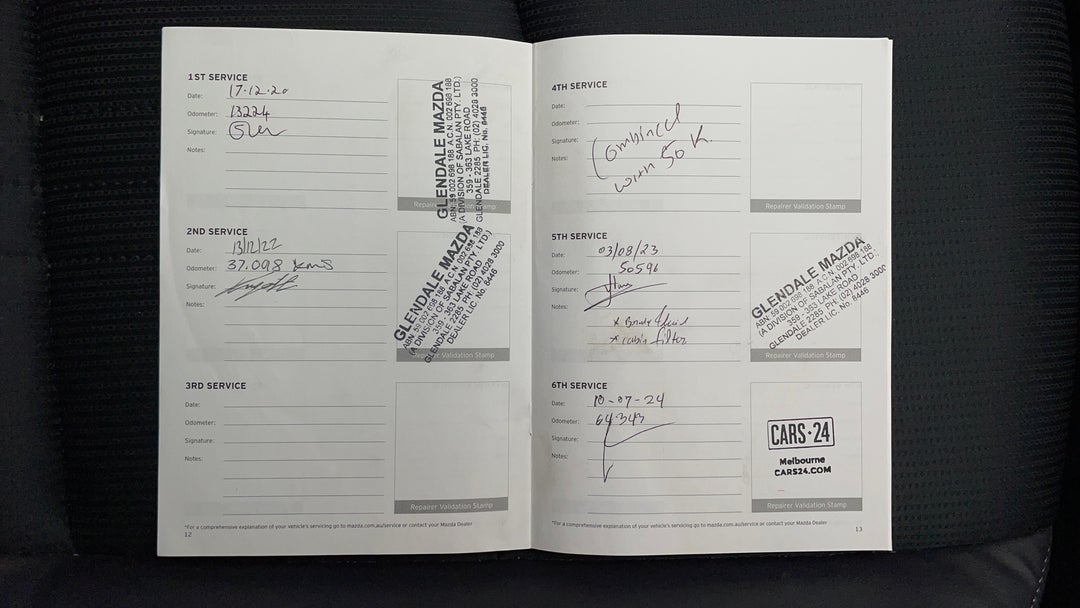 1ST SERVICE
Date: 17.12.20
Odometer: 13224
Signature:
Notes:
GLENDALE MAZDA
ABN. 59 002 698 188 A.C.N. 002 698 188
(A DIVISION OF SABALAN PTY. LTD.)
359 - 363 LAKE ROAD
GLENDALE 2285 PH: (02) 4028 3000
DEALER LIC. No. 8446
Repairer Validation Stamp
2ND SERVICE
Date: 13/12/22
Odometer: 37.098 kms
Signature:
Notes:
GLENDALE MAZDA
ABN. 59 002 698 188 A.C.N. 002 698 188
(A DIVISION OF SABALAN PTY. LTD.)
359 - 363 LAKE ROAD
GLENDALE 2285 PH: (02) 4028 3000
DEALER LIC. No. 8446
Repairer Validation Stamp
3RD SERVICE
Date:
Odometer:
Signature:
Notes:
Repairer Validation Stamp
*For a comprehensive explanation of your vehicle's servicing go to mazda.com.au/service or contact your Mazda Dealer
12
4TH SERVICE
Date:
Odometer:
Signature:
Notes:
Combined
with 50 K.
Repairer Validation Stamp
5TH SERVICE
Date: 03/08/23
Odometer: 50596
Signature:
Notes:
* Brake fluid
* cabin filter
GLENDALE MAZDA
ABN. 59 002 698 188 A.C.N. 002 698 188
(A DIVISION OF SABALAN PTY. LTD.)
359 - 363 LAKE ROAD
GLENDALE 2285 PH: (02) 4028 3000
DEALER LIC. No. 8446
Repairer Validation Stamp
6TH SERVICE
Date: 10-07-24
Odometer: 64343
Signature:
Notes:
CARS·24
Melbourne
CARS24.COM
Repairer Validation Stamp
*For a comprehensive explanation of your vehicle's servicing go to mazda.com.au/service or contact your Mazda Dealer
13